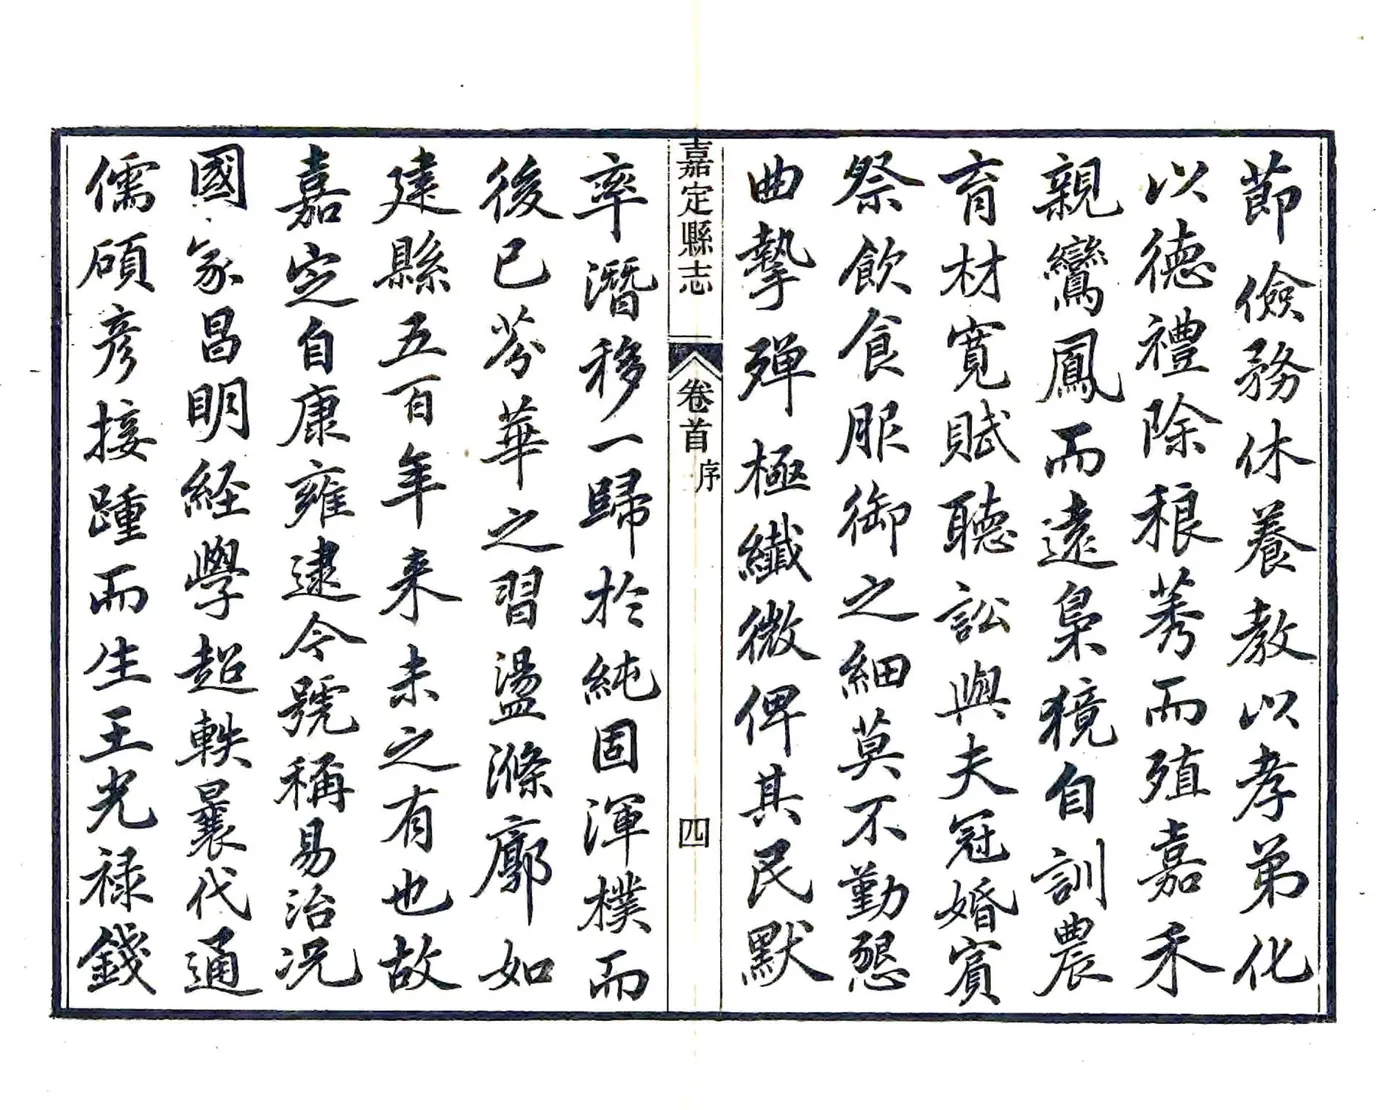 節儉務休養教以孝弟化
以德禮除稂莠而殖嘉禾
親鸞鳳而遠梟獍自訓農
育材寬賦聽訟與夫冠婚賓
祭飲食服御之細莫不勤懇
曲摯殫極纖微俾其民默
嘉定縣志
卷首
序
四
率潛移一歸於純固渾樸而
後已芬華之習盪滌廓如
建縣五百年来未之有也故
嘉定自康雍逮今號稱易治况
國家昌明經學超軼曩代通
儒碩彦接踵而生王光禄錢